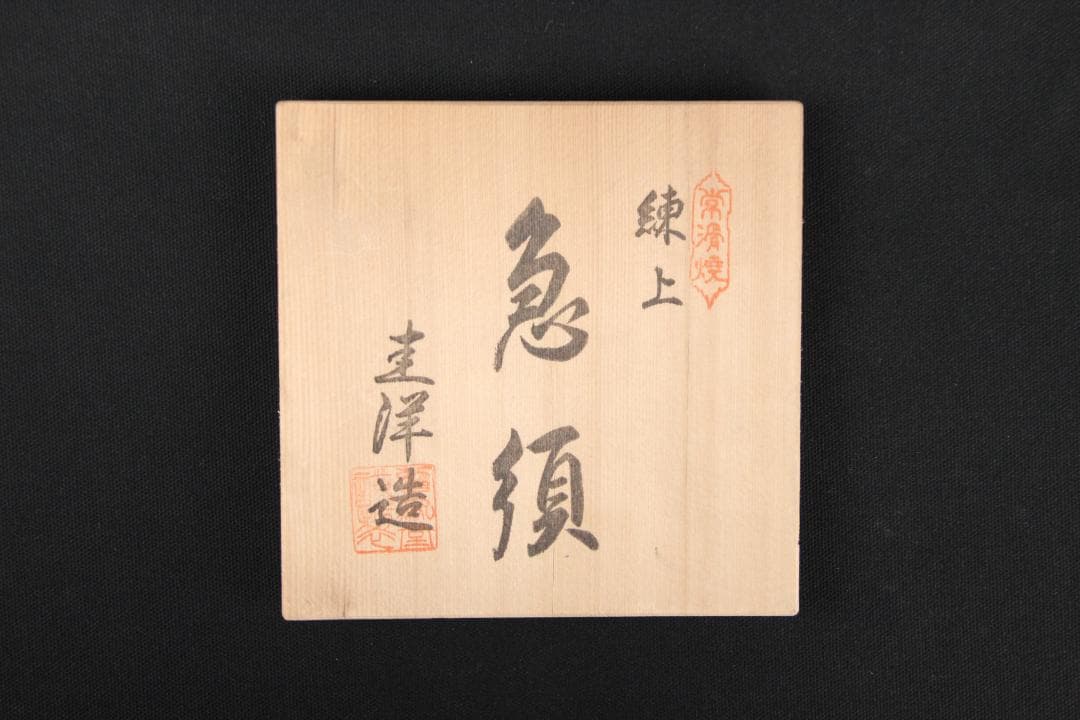 常滑焼
練上
急須
圭洋造